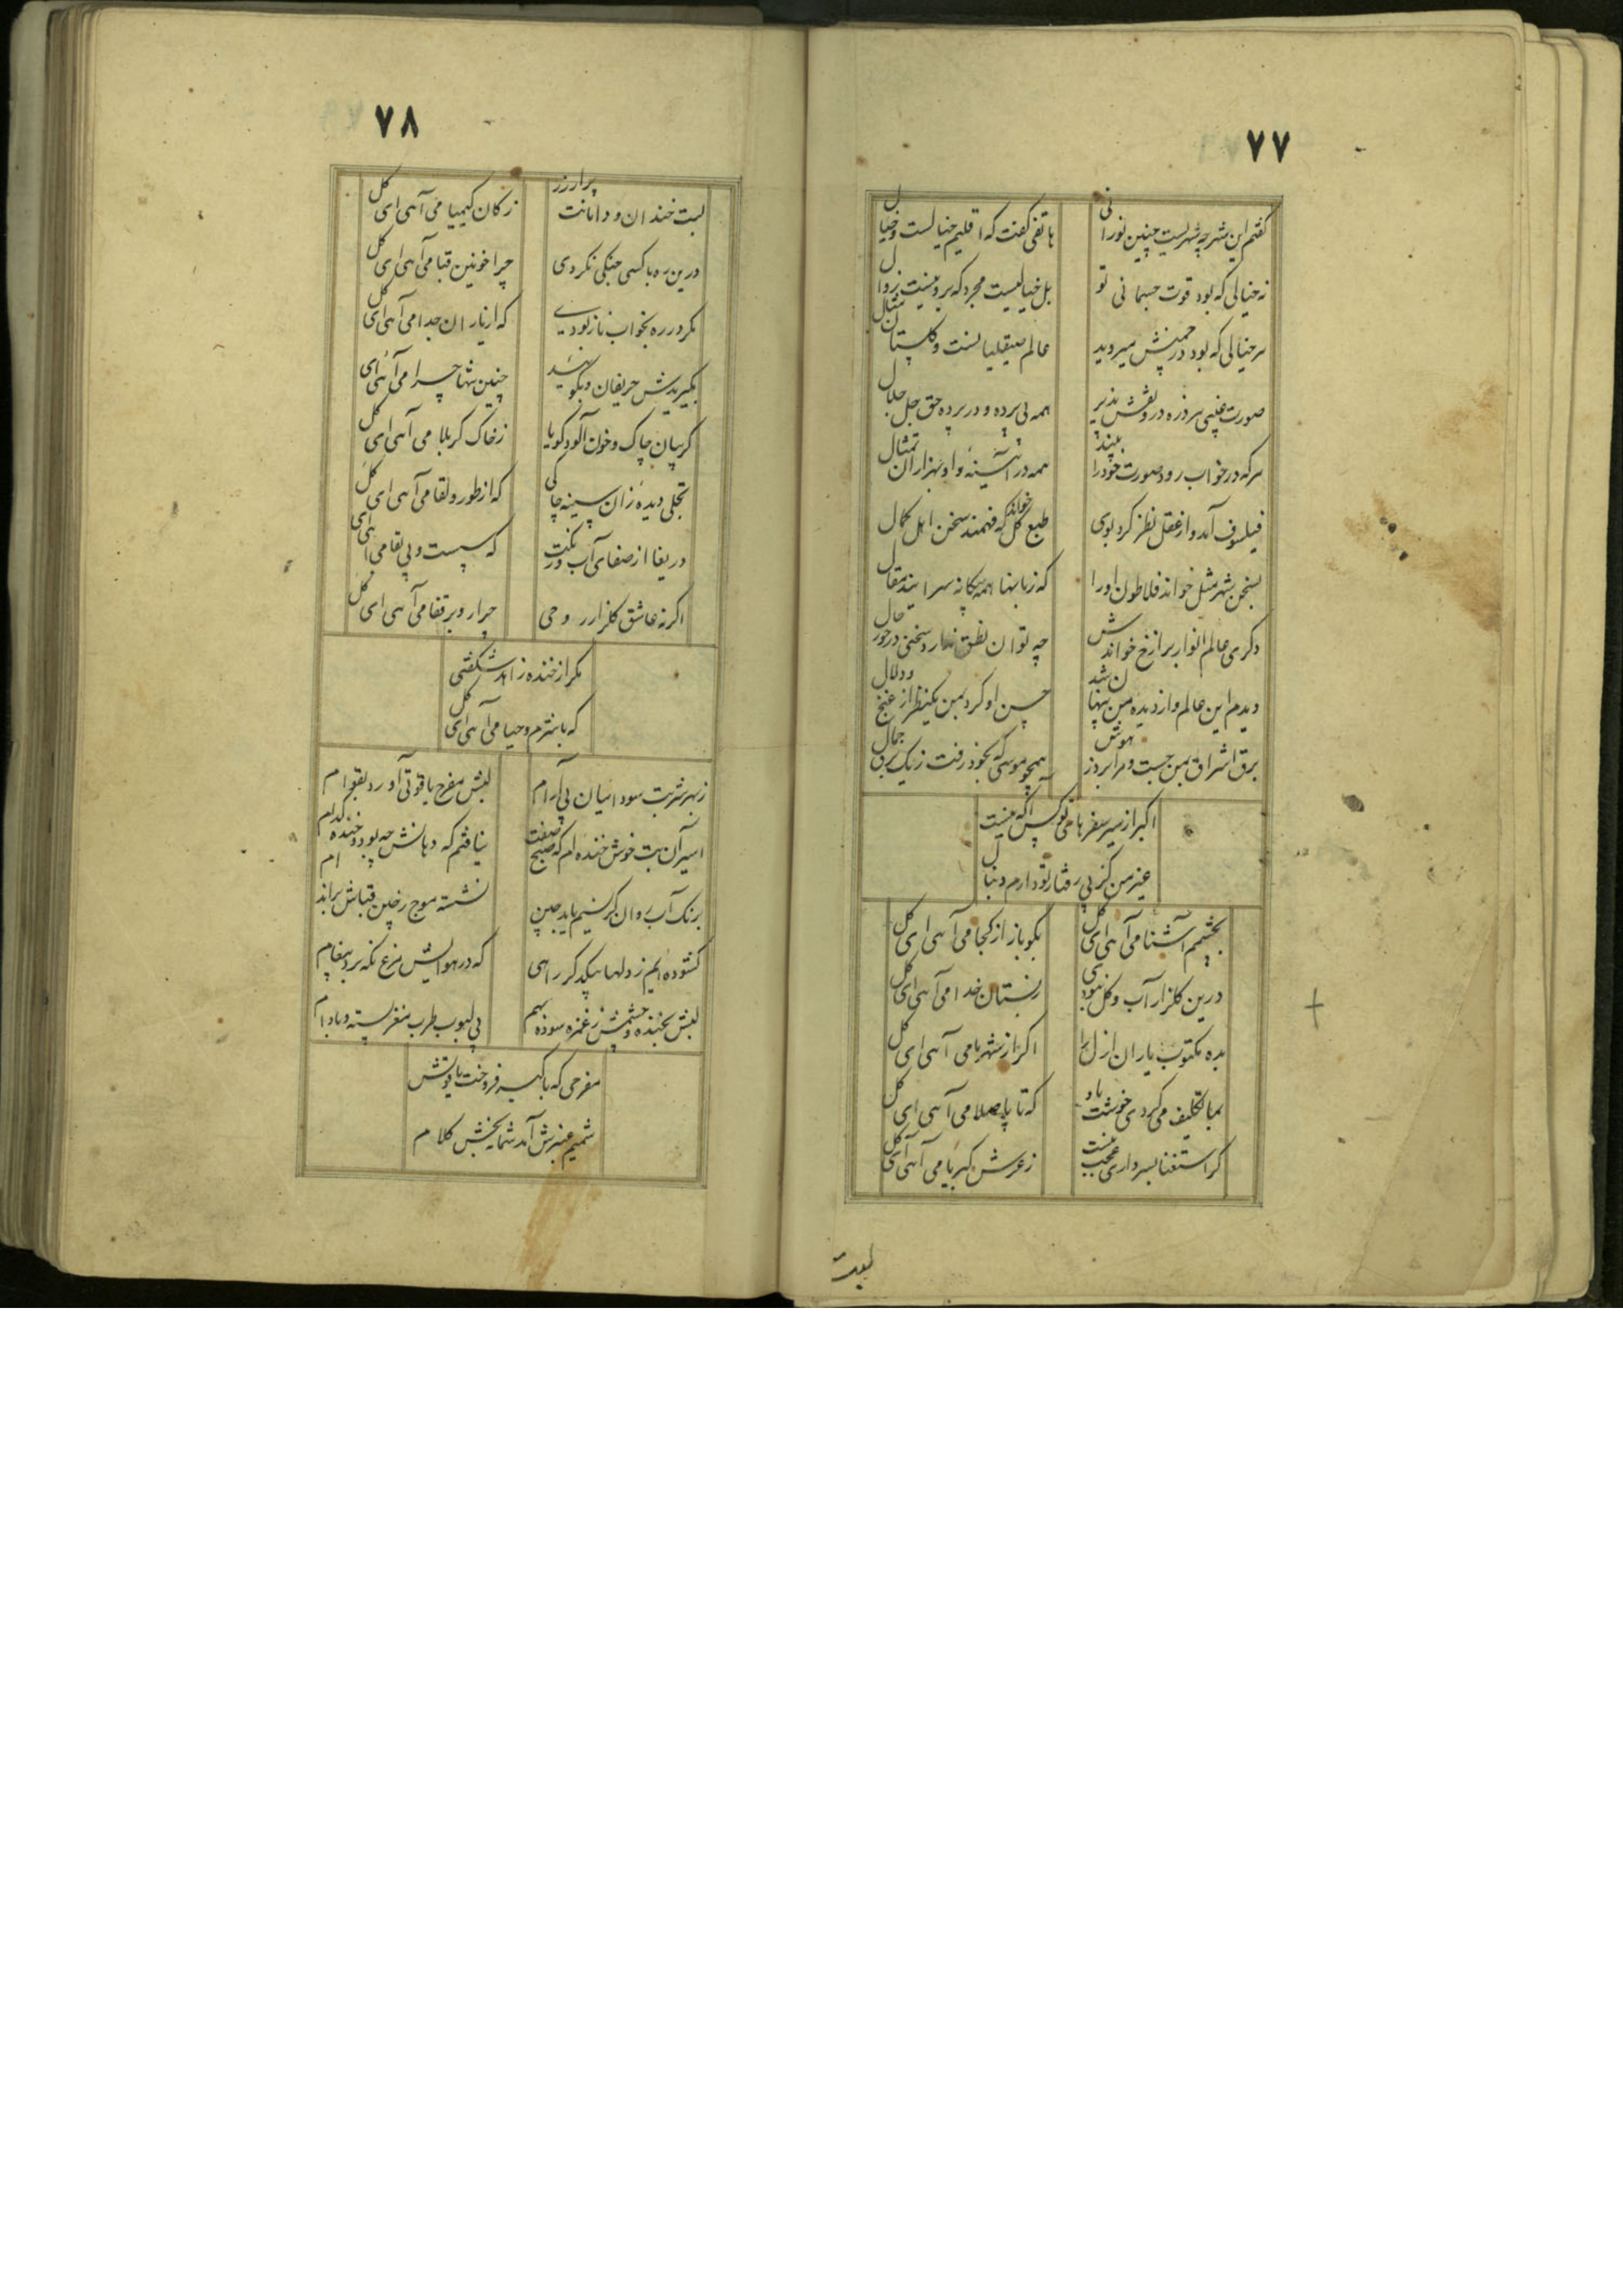 ۷۷
گفتم این شهر چه شهریست چنین نورانی
هاتفی گفت که اقلیم خیالست و خیال
نه خیالی که بود قوت جسمانی تو
بل خیالیست مجرد که برو نیست زوال
هر خیالی که بود در چمنش میروید
عالم صیقلیانست و گلستان مثال
صورت غیبی هر ذره درو نقش پذیر
همه بی پرده و در پرده حق جل جلال
هر که در خواب رود صورت خود را بیند
همه در آئینه و او بهزاران تمثال
فیلسوف آمد و از عقل نظر کرد بوی
طبع کل خواند که فهمند سخن اهل کمال
بسخن شهر مثل خواند فلاطون او را
که زبانها همه یکانه سرایند مقال
دگری عالم انوار برازخ خواندش
چه توان نطق ندارد سخنی در خور حال
دیدم این عالم و از دیده من پنهان شد
حسن او کرد بمن یکنظر از غنج و دلال
برق اشراق بمن جست و مرا برد ز هوش
همچو موسی که بخود رفت ز یک برق جمال
اکبر از سیر سفرهای تو کس آگه نیست
غیر من کز پی رفتار تو دارم دنبال
بچشمم آشنا می آهی ای گل
بگو باز از کجا می آهی ای گل
درین گلزار آب و گل نبودی
ز بستان خدا می آهی ای گل
بده مکتوب یاران ازل را
اگر از شهر ما می آهی ای گل
بما تکلیف می کردی خوشت باد
که تا پا صلا می آهی ای گل
گر استغنا بسر داری عجب نیست
ز عرش کبریا می آهی ای گل
لبت
۷۸
لبت خندان و دامانت پر از زر
ز کان کیمیا می آهی ای گل
درین ره با کسی جنگی نکردی
چرا خونین قبا می آهی ای گل
مگر در ره بخواب ناز بودی
که از یاران جدا می آهی ای گل
بگیریدش حریفان و بگوئید
چنین تنها چرا می آئی ای
گریبان چاک و خون آلود گویا
ز خاک کربلا می آهی ای گل
تجلی دیده زان سینه چاکی
که از طور و لقا می آهی ای گل
دریغا از صفای آب و رنگت
که سست و بی بقا می آهی ای
اگر نه عاشق گلزار روحی
چرا رو بر قفا می آهی ای گل
مگر از خنده زاهد شگفتی
که با شرم و حیا می آهی ای گل
ز بهر شربت سودائیان بی آرام
لبش مفرح یاقوتی آورد بقوام
اسیر آن بت خوش خنده ام که صبح صفت
نیافتم که دهانش چه بود و خنده کدام
برنگ آب روان کز نسیم یابد چین
نشسته موج ز چین قباش بر اندام
گشوده ایم ز دلها بیکدگر راهی
که در هوایش مرغ نگه برد پیغام
لبش بخنده و چشمش ز غمزه سوده بهم
پی لبوب طرب مغز پسته و بادام
مفرحی که بآگهیه فروخت یاقوتش
شمیم عنبرش آمد شمایه بخش کلام